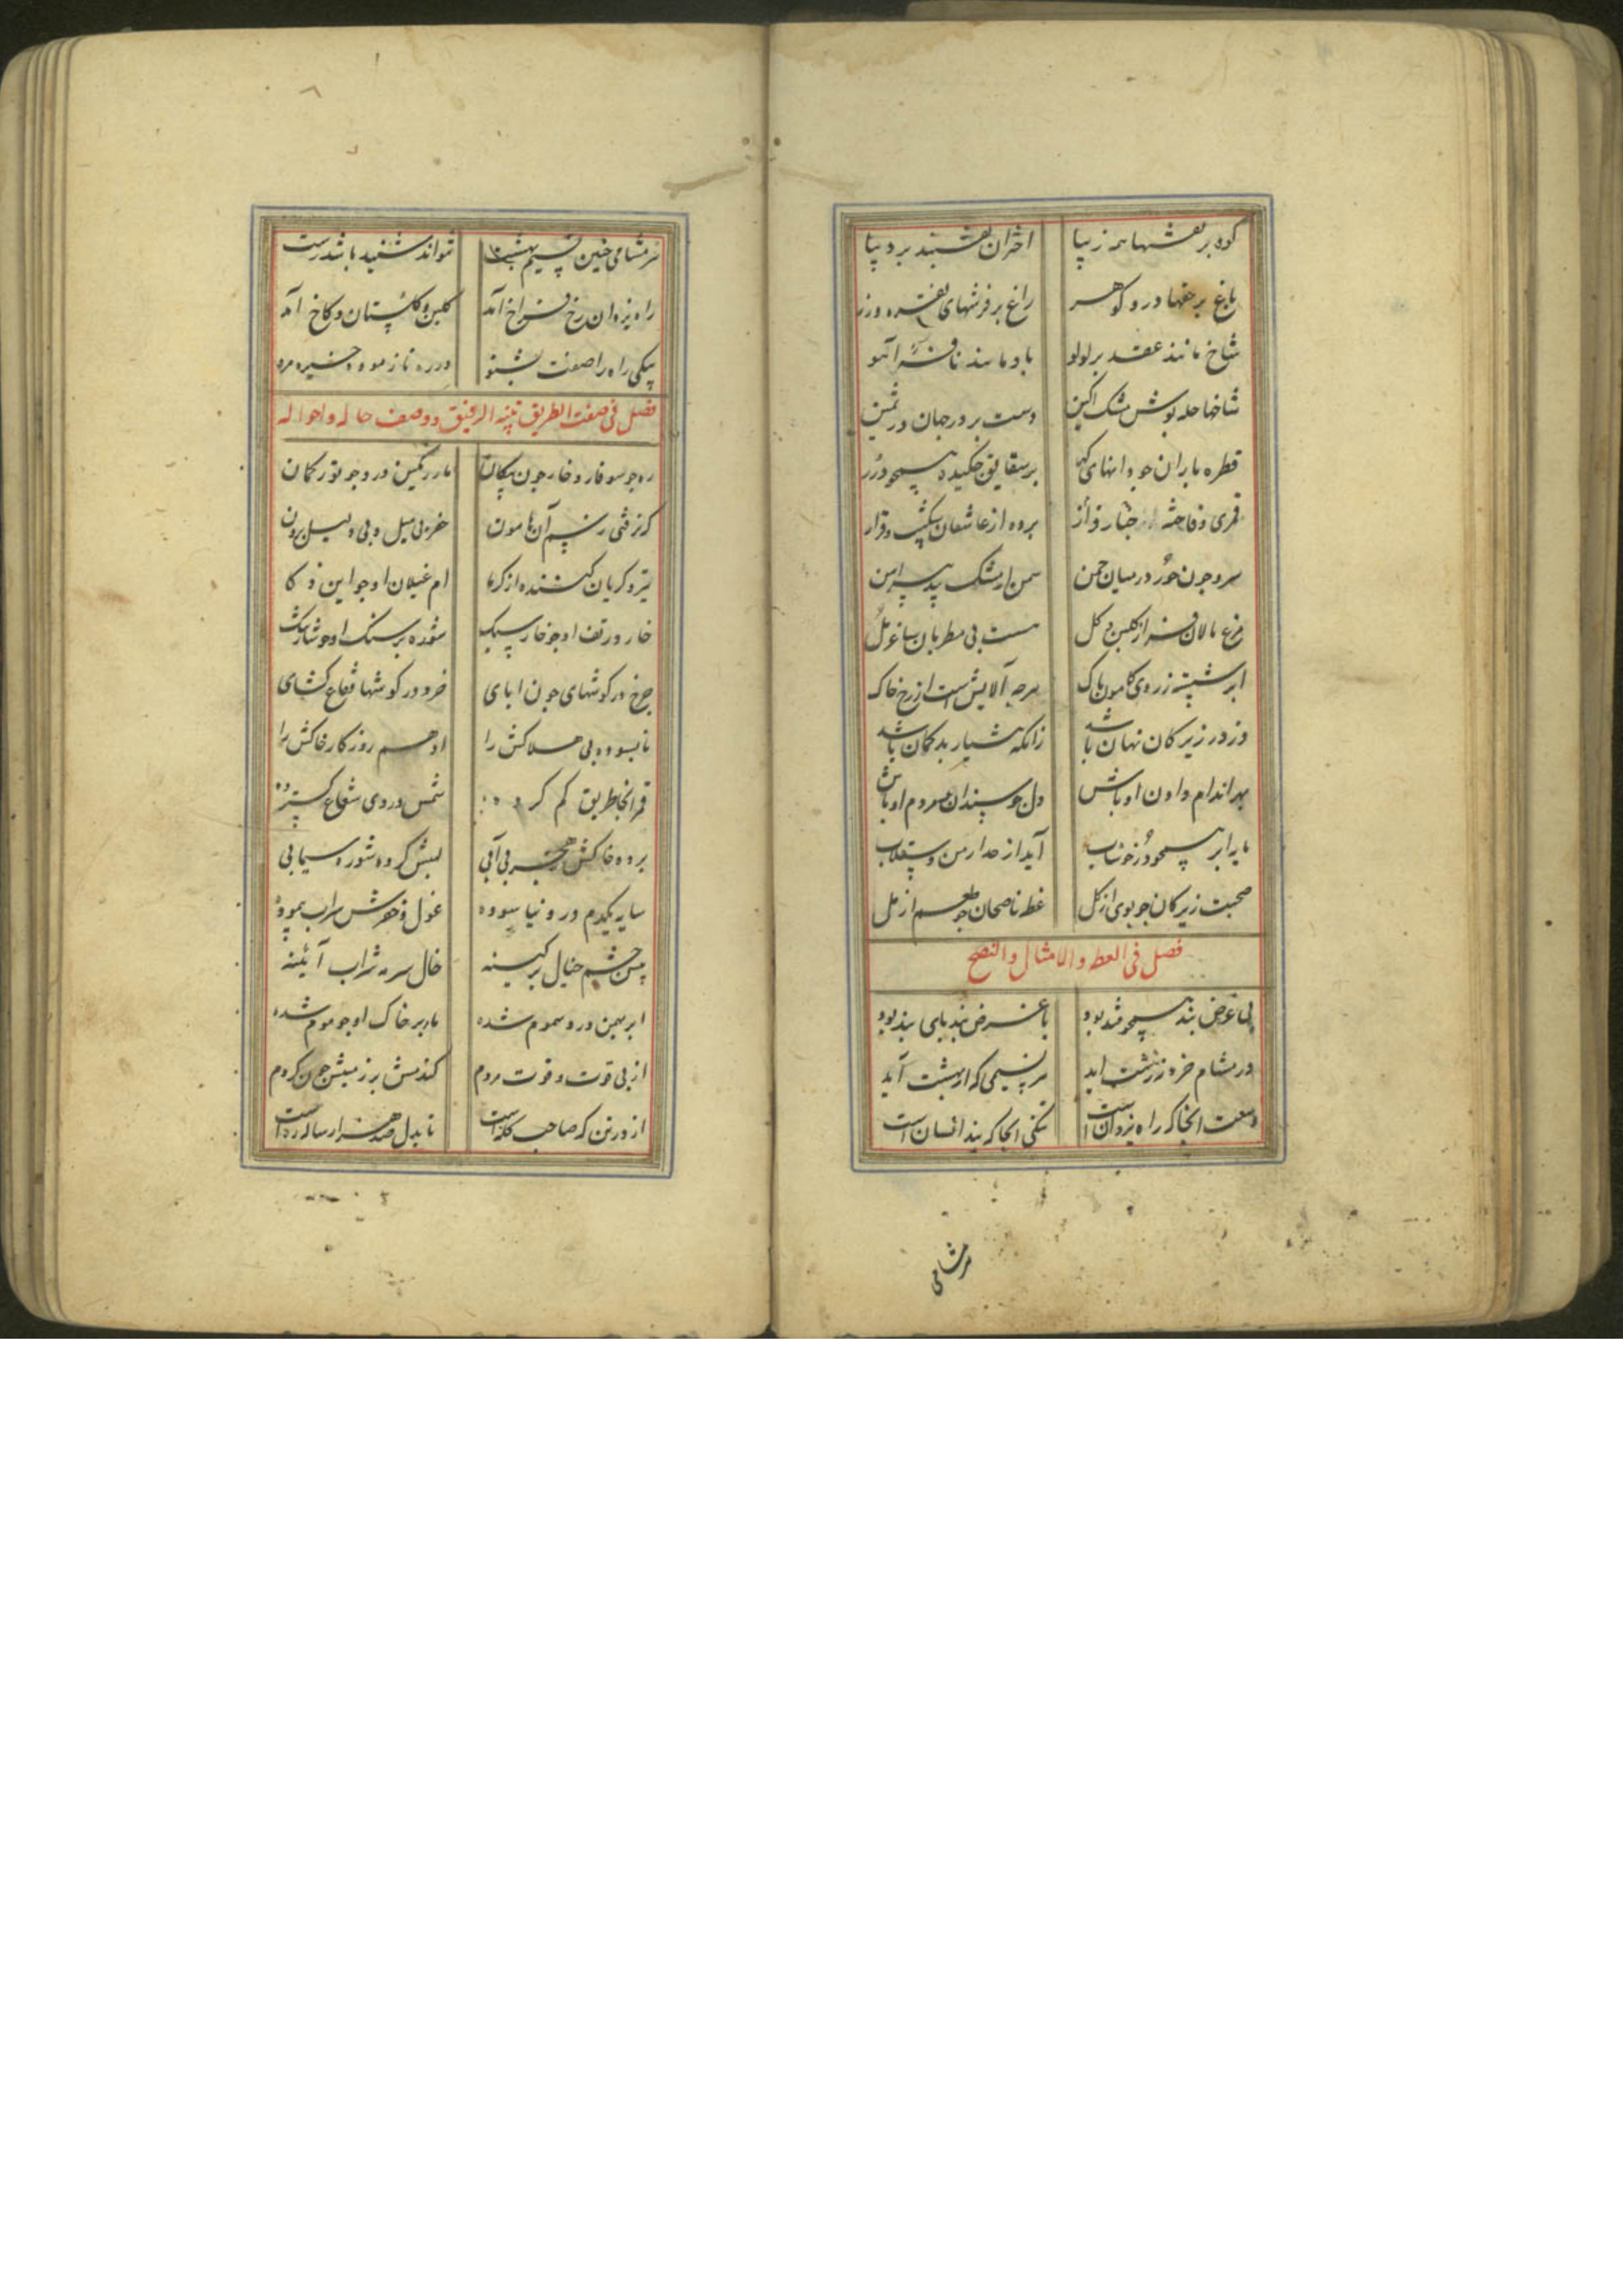 کوه بر نقشها همه زیبا اختران نقشبند بر دیبا
باغ بر حقها در و کوهر راغ بر فرشهای نقره و زر
شاخ مانند عقد بر لولو باد مانند نافه آهو
شاخها حله پوش مشک اکین دست بر در جهان در ثمین
قطره باران جو دانهای بر شقایق جکیده همجو درر
قمری و فاخته برده از عاشقان شکیب و قرار
سرو جون حور در میان جمن سمن از مشک پیرامن
مرغ نالان فراز کلبن و کل مست بی مطربان ساغر مل
ابر شسته ز روی هامون پاک هرجه آلایش است از رخ خاک
دزد در زیرکان نهان باشد زانکه هشیار بدکمان باشد
بهر اندام دادن اوباش دل جو سندان مردم اوباش
ناید ابر همجو در خوشاب آید از حد ارمن و سقلاب
صحبت زیرکان جو بوی از کل عظه ناصحان جو طعم از مل
فصل فی العظه والامثال والنصح
بی غرض پند همجو قند بود با غرض پند پای بند بود
در مشام خرد زشت آید هر نسیمی که از بهشت آید
وسعت آنجا که راه یزدان است تنکی آنجا که پند انسان است
هر مشامی
هر مشامی جنین نسیم بهشت نتواند شنید باشد زشت
راه یزدان رخ فراخ آمد کلبن و کلستان و کاخ آمد
نیکی راه را صفت بشنو در ره نازموده خیره مرو
فصل فی صفت الطریق تنبه الرفیق و وصف حاله و احواله
ره جو سوفار و خار جون پیکان مار رنکین درو جو توز کمان
که نرفتی ز بیم آن هامون خضر بی میل و بی دلیل برون
ام غیلان او جو ابن ذکا
خار در تف او جو خار سبک شوده بر سنک او جو شارشک
جرخ در کوشهای جون ابای خرد در کوشها فقاع کشای
نابسوده بی هلاکش را ادهم روزکار خاکش را
قمر آنجا طریق کم کرده شمس در وی شعاع کسترده
برده خاکش ز هجر بی آبی لبش کرده شوره سیمابی
سایه یکدم درو نیاسوده غول حوضش سراب پیموده
پیش جشم خیال هر کینه خال سر به شراب آئینه
ابر بهمن درو سموم شده باد بر خاک او جو موم شده
از بی قوت و قوت مردم کندمش بر زمینش جون کزدم
از در تن که صاحب کله است تا بدل صد هزار ساله ره است